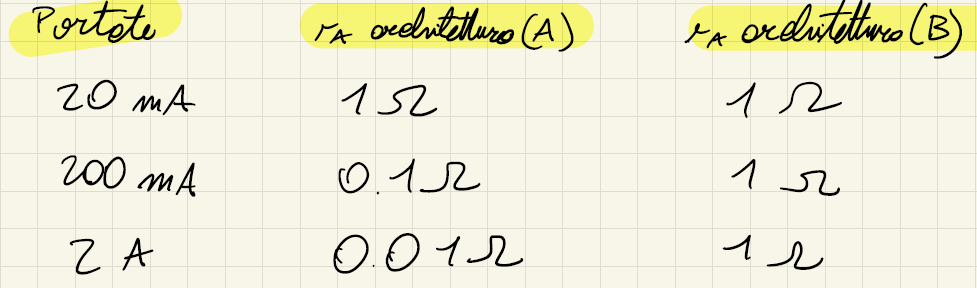 Portate r_A architettura (A) r_A architettura (B)
20 mA 1 Ω 1 Ω
200 mA 0.1 Ω 1 Ω
2 A 0.01 Ω 1 Ω